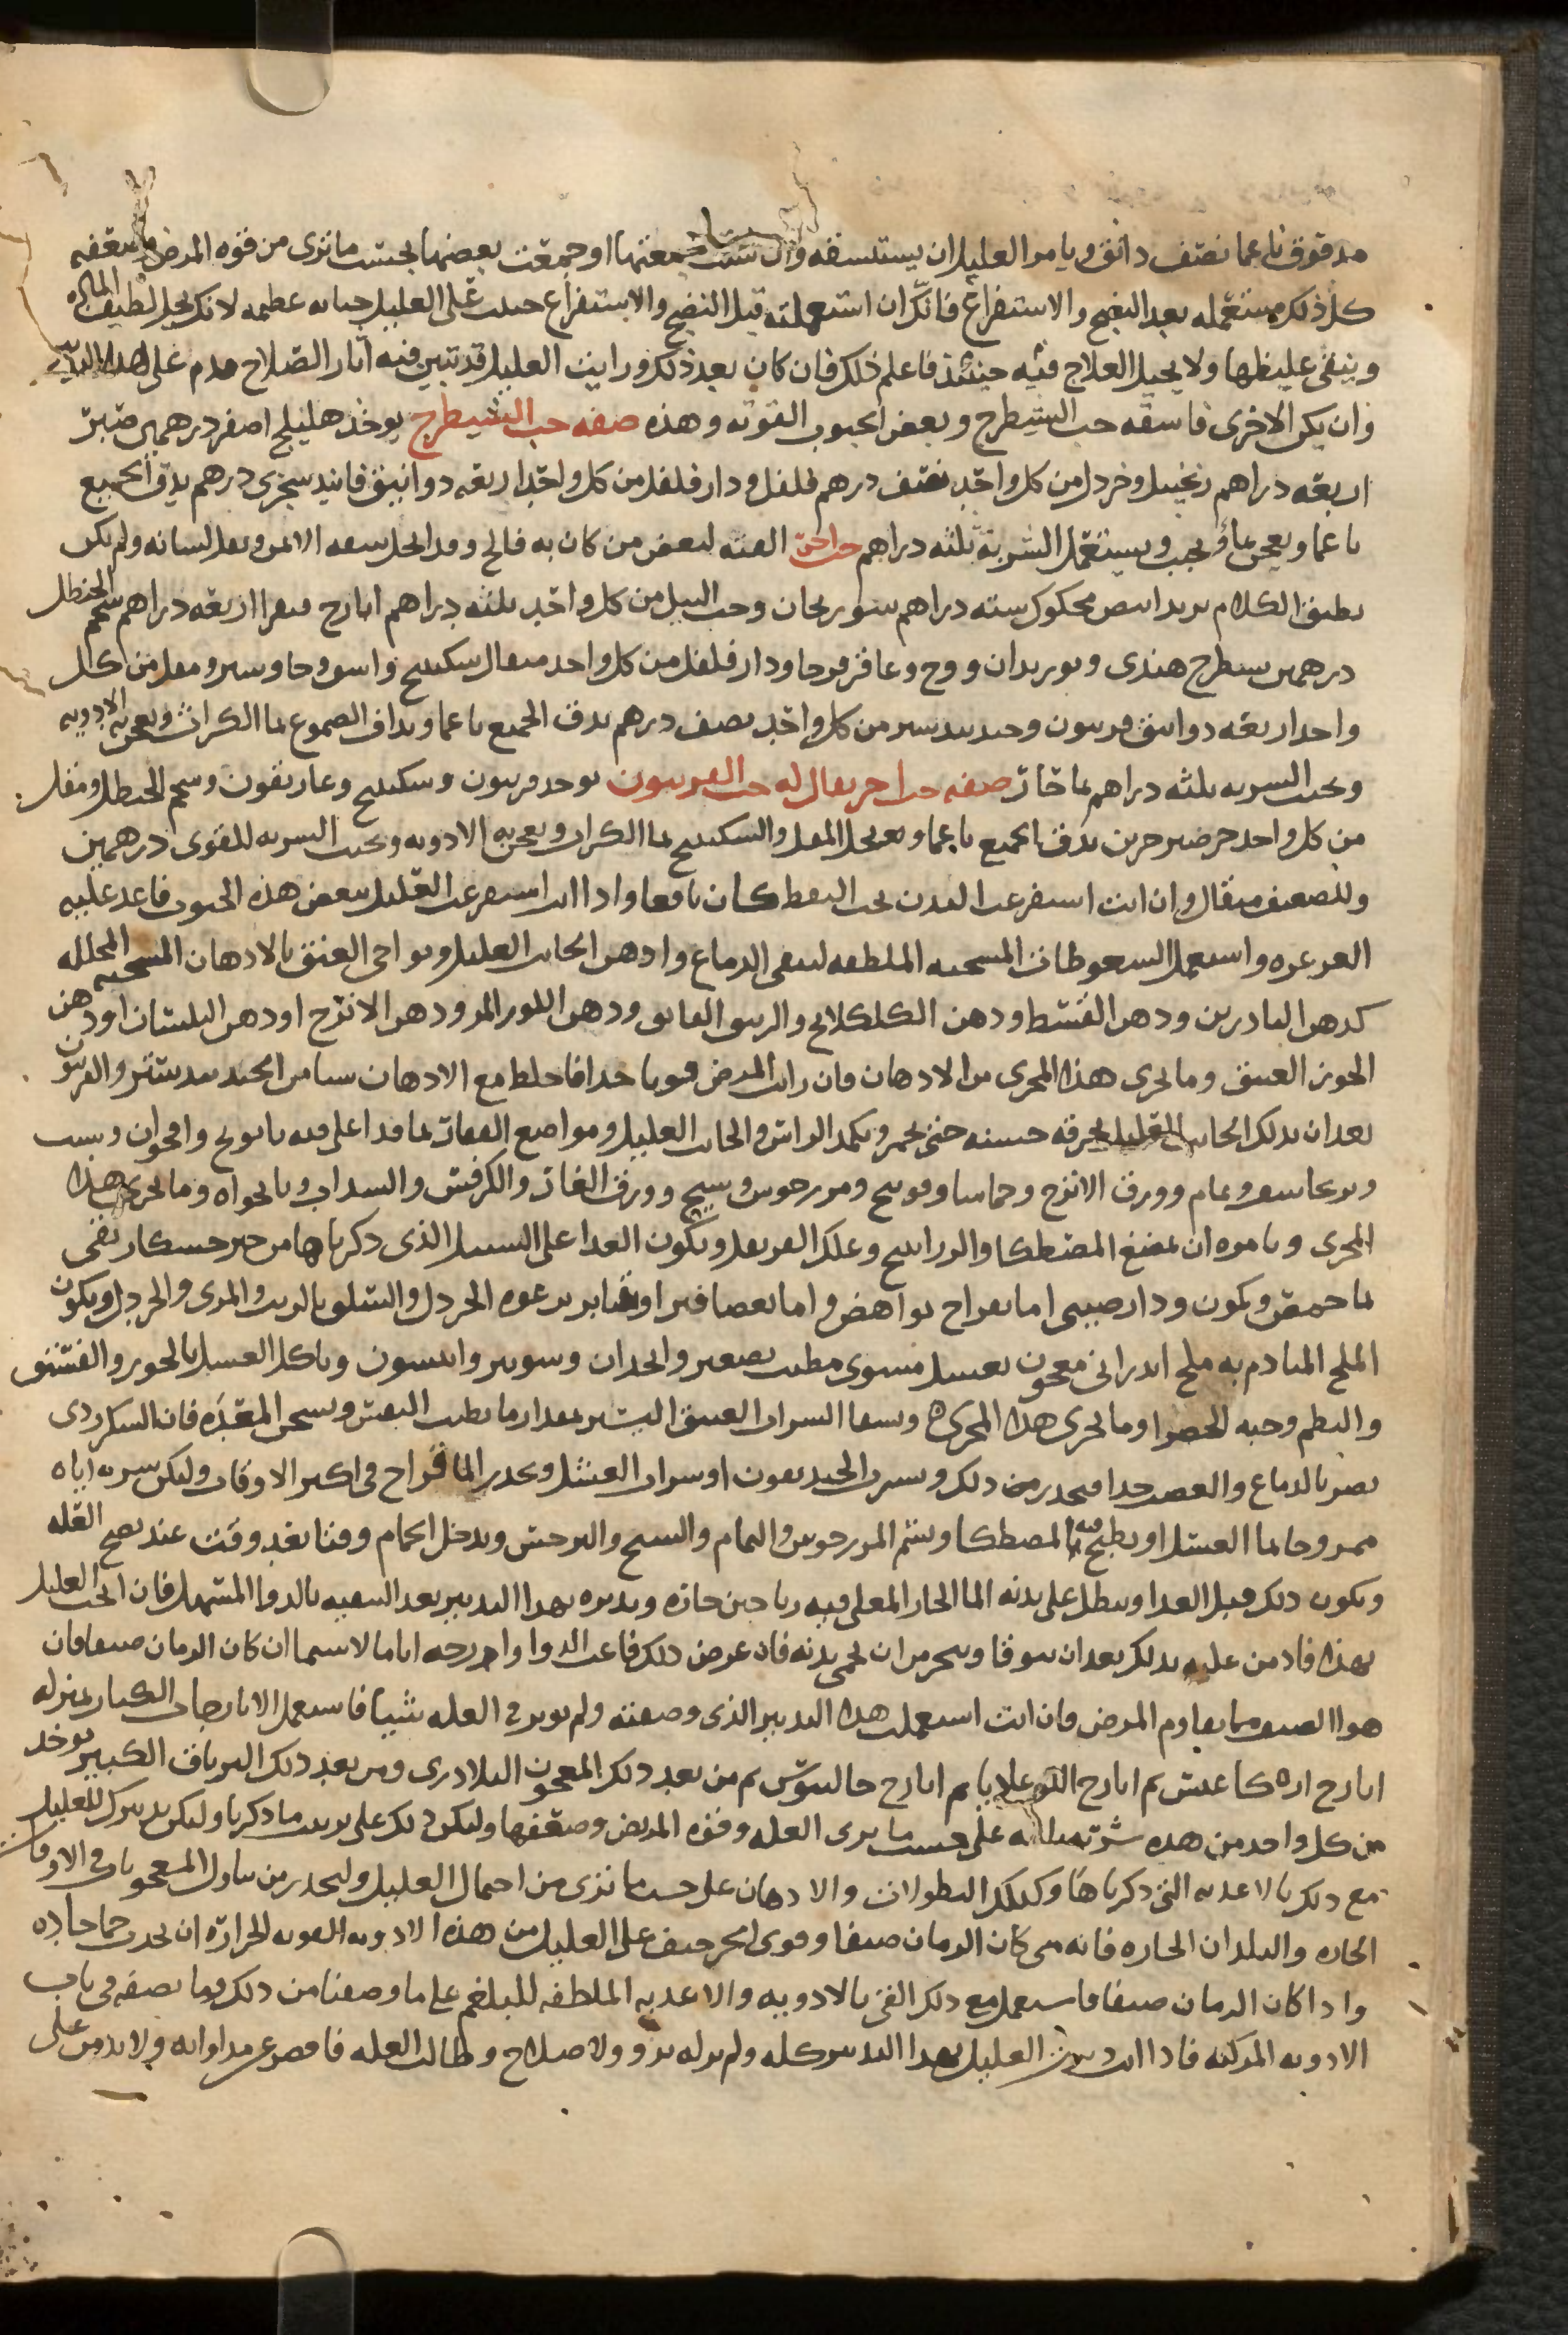 مدقوق ناعما نصف دانق ويامر العليل ان يستنشقه وان شئت جمعتها او جمعت بعضها بحسب ما ترى من قوه المرض وضعفه
كل ذلك مستعمله بعد النضج والاستفراغ فانك ان استعملته قبل النضج والاستفراغ جنيت على العليل جنايه عظيمه لانك تحلل لطيف الماده
ويبقى غليظها ولا يحيل العلاج فيه حينئذ فاعلم ذلك فان كان بعد ذلك ورايت العليل قد تبين فيه اثار الصلاح فدم على هذا التدبير
وان يكن الاخرى فاسقه حب الشيطرج وبعض الحبوب القويه وهذه صفه حب الشيطرج يوخذ هليلج اصفر درهمين صبر
اربعه دراهم زنجبيل وخردل من كل واحد نصف درهم فلفل ودار فلفل من كل واحد اربعه دوانيق فانيد سجزى درهم يدق الجميع
ناعما ويعجن بماء ويحبب ويستعمل الشربة ثلثه دراهم حب اخر الفته لبعض من كان به فالج وقد انحل شقه الايمن وثقل لسانه ولم يكن
يطيق الكلام تربد ابيض محكوك سته دراهم سورنجان وحب النيل من كل واحد ثلثه دراهم ايارج فيقرا اربعه دراهم شحم الحنظل
درهمين شيطرج هندى وبوزيدان ووج وعاقرقرحا ودار فلفل من كل واحد مثقال سكبينج واشق وجاوشير ومقل من كل
واحد اربعه دوانيق فربيون وجندبيدستر من كل واحد نصف درهم يدق الجميع ناعما ويداف الصموغ بما الكراث ويعجن به الادويه
ويحبب الشربه ثلثه دراهم بما حار صفه حب اخر يقال له حب الفربيون يوخذ فربيون وسكبينج وغاريقون وشحم الحنظل ومقل
من كل واحد جز صبر جزين يدق الجميع ناعما ويحل المقل والسكبينج بما الكراث ويعجن به الادويه ويحبب الشربه للقوى درهمين
وللضعيف مثقال وان انت استفرغت البدن بحب النفط كان نافعا واذا انت استفرغت العليل ببعض هذه الحبوب فاعد عليه
الغرغره واستعمل السعوطات المسخنه الملطفه لينقى الدماغ وادهن الجانب العليل ونواحى العنق بالادهان المسخنه المحلله
كدهن الناردين ودهن القسط ودهن الكلكلانج والزيبق الفايق ودهن اللوز المر ودهن الاترج او دهن البلسان او دهن
الجوز العتيق وما يجرى هذا المجرى من الادهان فان رايت المرض قويا جدا فاخلط مع الادهان شيا من الجندبيدستر والفربيون
بعد ان تدلك الجانب العليل بخرقه خشنه حتى يحمر ويكمد الراس والجانب العليل ومواضع الفقار بما قد اغلى فيه بابونج واقحوان وشبث
وبرنجاسف ونمام وورق الاترج وحماما وفوتنج ومرزنجوش وشيح وورق الغار والكرفس والسذاب ونانخواه وما يجرى هذا
المجرى وتامره ان يمضغ المصطكا والوج وعلك القرنفل ويكون الغذا على السبيل الذى ذكرناها من خبز خشكار نقى
بما حمص وكمون ودارصينى اما بفراخ نواهض واما بعصافير او قنابر بزعوه الخردل والسلق بالزيت والمرى والخردل ويكون
الملح المتادم به ملح اندرانى معجون بعسل مسوى مطيب بصعتر وانجدان وشونيز وانيسون وياكل العسل بالجوز والفستق
والبطم وحبه الخضرا وما يجرى هذا المجرى ويسقا الشراب العتيق اليسير بمقدار ما يطيب النفس ويسخن المعده فان السكر ردى
يضر بالدماغ والعصب جدا فيحذر من ذلك ويشرب الخنديقون او شراب العسل ويحذر الما القراح فى اكثر الاوقات وليكن شربه اياه
ممزوجا بما العسل او يطبخ فيه المصطكا ويشم المرزنجوش والنمام والشيح والنرجس ويدخل الحمام وقتا بعد وقت عند نضج العله
ويكون ذلك قبل الغذا ويبطل على بدنه الما الحار المغلى فيه رياحين حاره ويدبره بهذا التدبير بعد التنقيه بالدوا المسهل فان انحت العليل
بهذا فادمن عليه بذلك بعد ان يتوقا ويحرص ان يحمى بدنه فان عرض ذلك فاغب الدوا وارحه اياما لا سيما ان كان الزمان صيفا فان
هوا الصيف مما يقاوم المرض فان انت استعملت هذا التدبير الذى وصفته ولم يوثر فى العله شيا فاستعمل الايارجات الكبار بمنزله
ايارج اركاغنيس ثم ايارج اللوغاديا ثم ايارج جالينوس ثم من بعد ذلك المعجون البلادرى ومن بعد ذلك الترياق الكبير يوخذ
من كل واحد من هذه شربه على حسب ما يرى العله وقوه المريض وضعفها وليكن ذلك على ترتيب ما ذكرنا وليكن تدبيرك للعليل
مع ذلك بالاغذيه التى ذكرناها وكذلك النطولات والادهان على حسب ما ترى من احتمال العليل وليحذر من تناول المعجونات فى الاوقات
الحاره والبلدان الحاره فانه متى كان الزمان صيفا وقوى الحر خيف على العليل من هذه الادويه القويه الحراره ان يحدث حما حاده
واذا كان الزمان صيفا فاستعمل مع ذلك القى بالادويه والاغذيه الملطفه للبلغم على ما وصفنا من ذلك وما نصفه فى باب
الادويه المركبه فاذا انت دبرت العليل بهذا التدبير كله ولم تر له برو ولا صلاح وطالت العله فاقصر عن مداواته ولا تدمن على